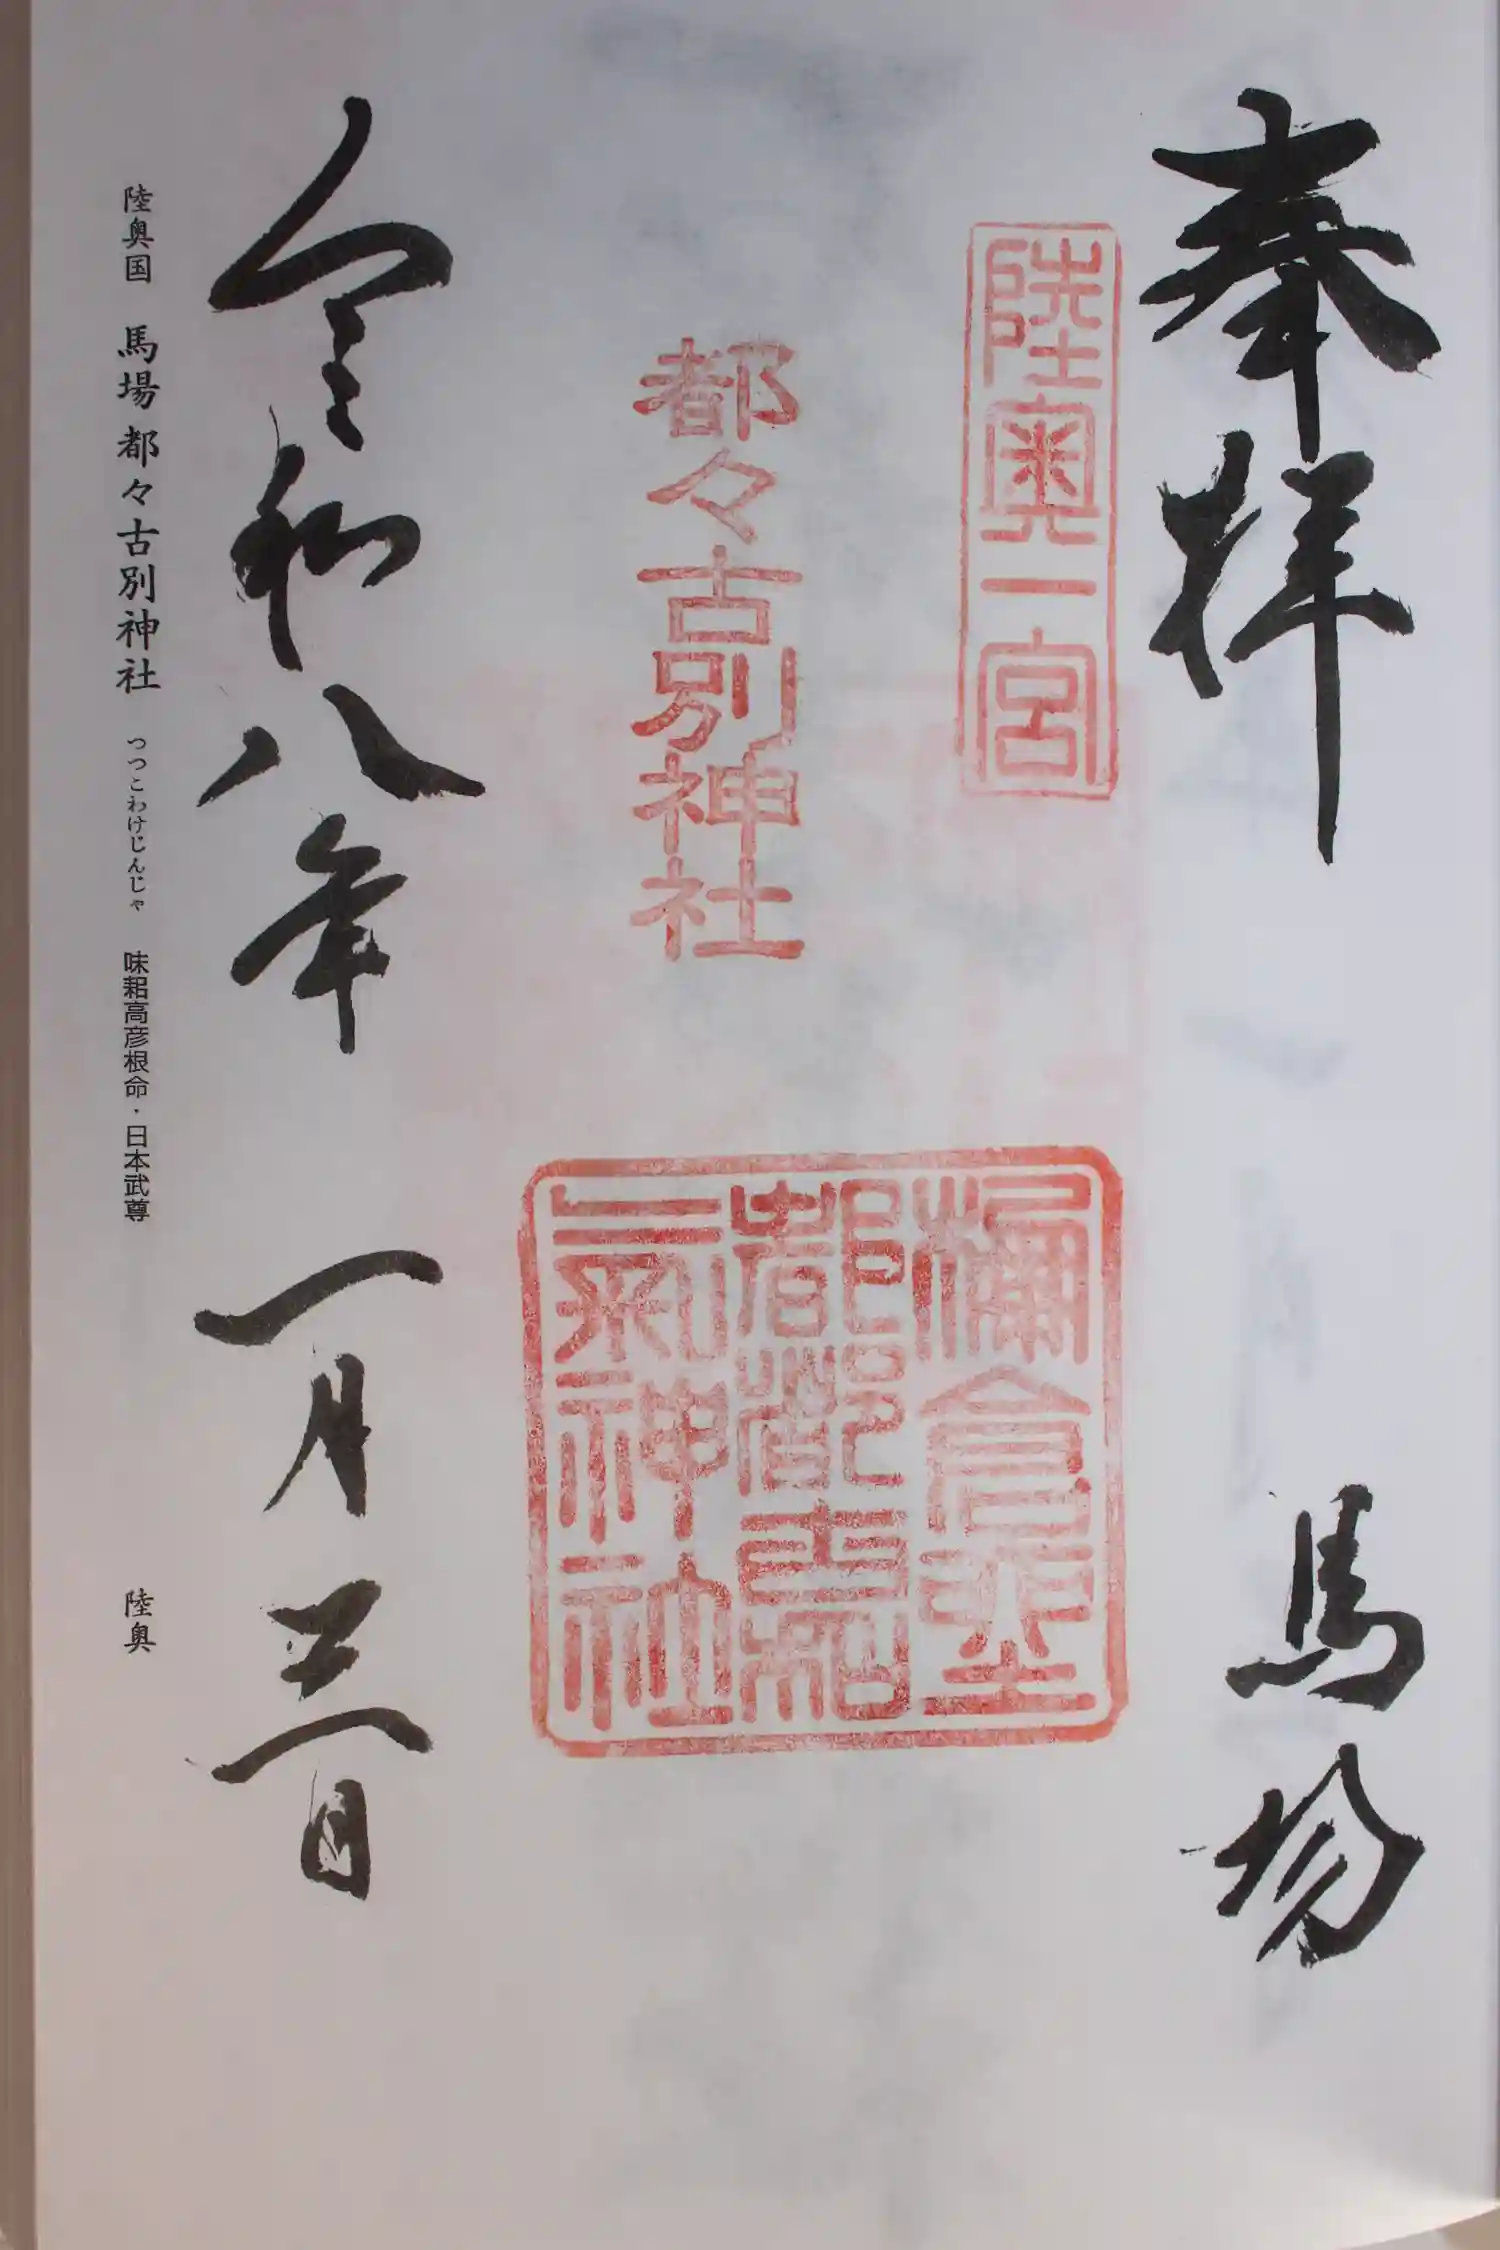 奉拝 馬場
陸奥一宮
都々古別神社
檷倉坐
都都古和
氣神社
令和八年 一月三日
陸奥国 馬場都々古別神社 つつこわけじんじゃ 味耜高彦根命・日本武尊 陸奥